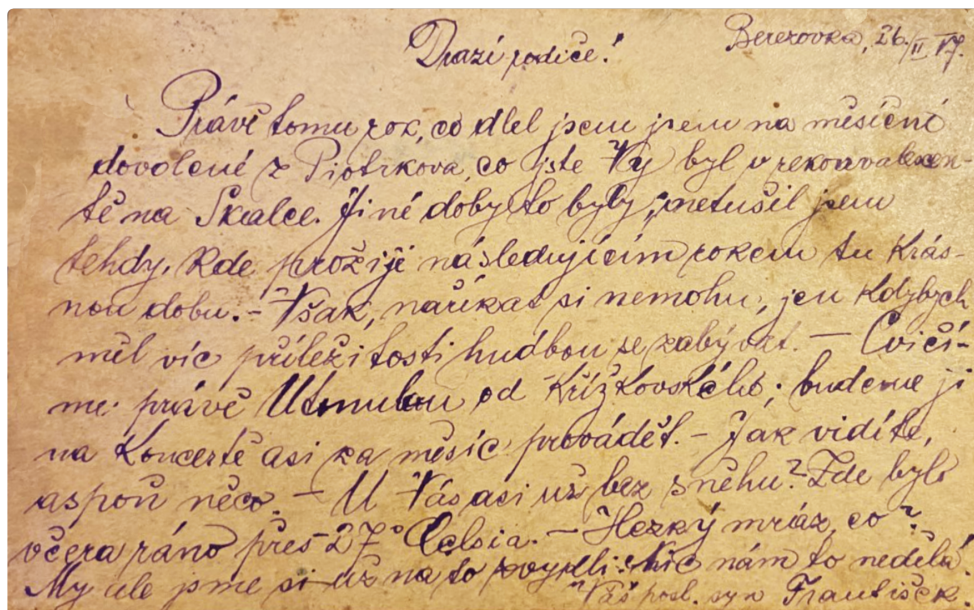 Drazí rodiče!
Berezovka, 26./II 17.
Právě tomu rok, co dlel jsem jsem na měsíční
dovolené z Piotrkova, co jste Vy byl v rekonvalescen-
tě na Skalce. Jiné doby to byly, netušil jsem
tehdy, kde prožiji následujícím rokem tu krás-
nou dobu. – Však, naříkat si nemohu, jen kdybych
měl víc příležitosti hudbou se zabývat. – Cvičí-
me právě Utonulou od Křížkovského; budeme ji
na koncertě asi za měsíc provádět. – Jak vidíte,
aspoň něco. – U Vás asi už bez sněhu? Zde bylo
včera ráno přes 27° Celsia. – Hezký mráz, co?
My ale jsme si už na to zvykli: nic nám to nedělá!
Váš posl. syn František.